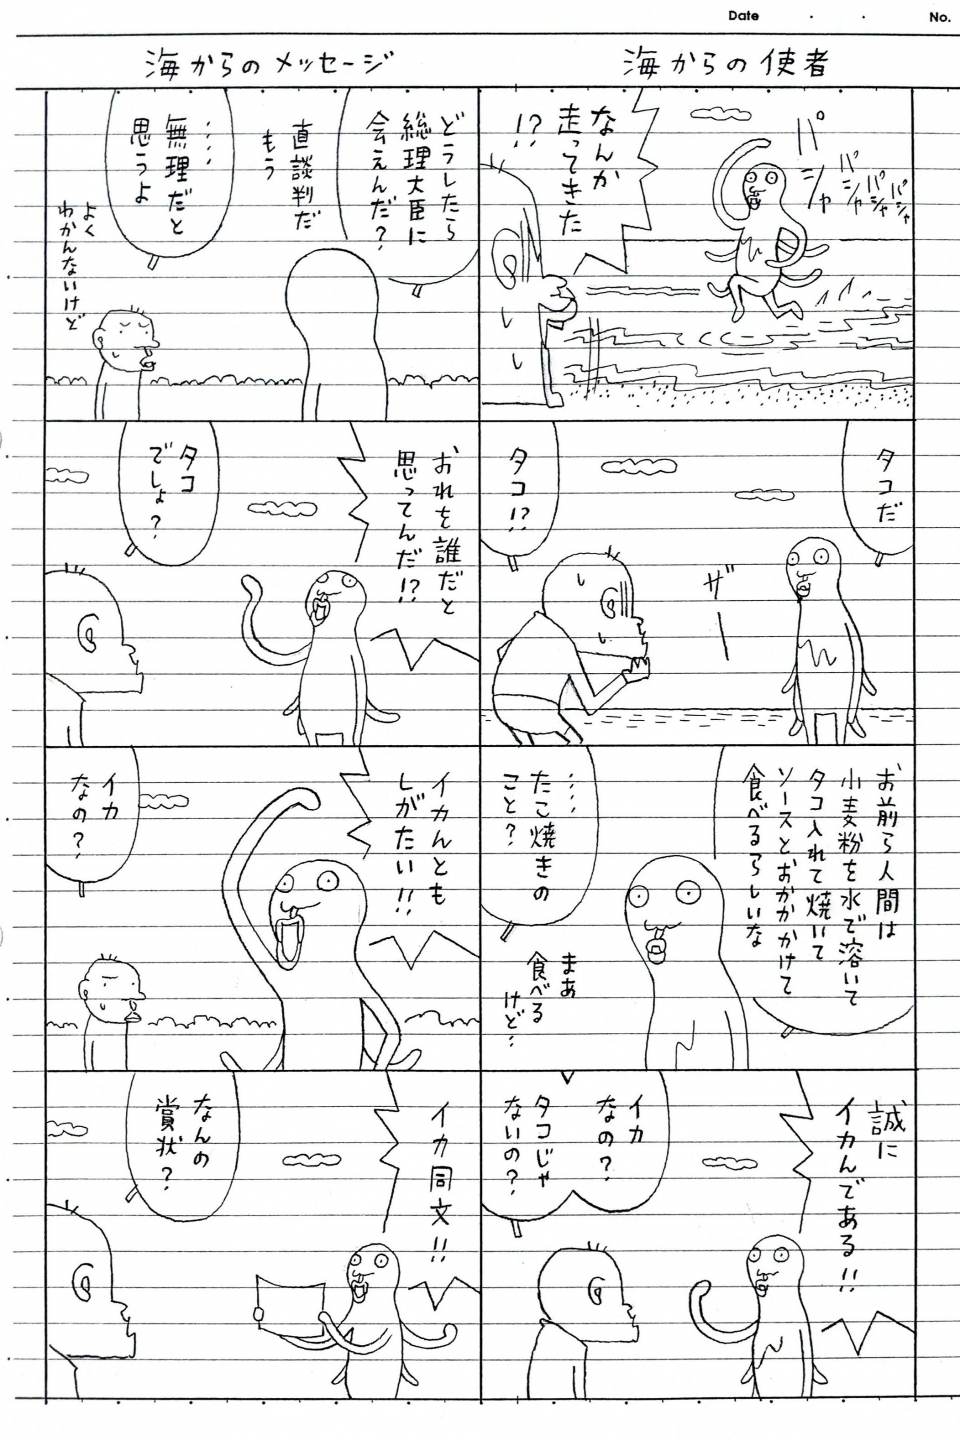 Date
No.
海からの使者
なんか
走ってきた
!?
パシャ
パシャ
パシャ
パシャ
タコだ
ザー
タコ!?
お前ら人間は
小麦粉を水で溶いて
タコ入れて焼いて
ソースとおかかかけて
食べるらしいな
……
たこ焼きの
こと?
まあ
食べる
けど..
誠に
イカんである!!
イカ
なの?
タコじゃ
ないの?
海からのメッセージ
どうしたら
総理大臣に
会えんだ?
直談判だ
もう
……
無理だと
思うよ
よく
わかんないけど
おれを誰だと
思ってんだ!?
タコ
でしょ?
イカんとも
しがたい!!
イカ
なの?
イカ同文!!
なんの
賞状?